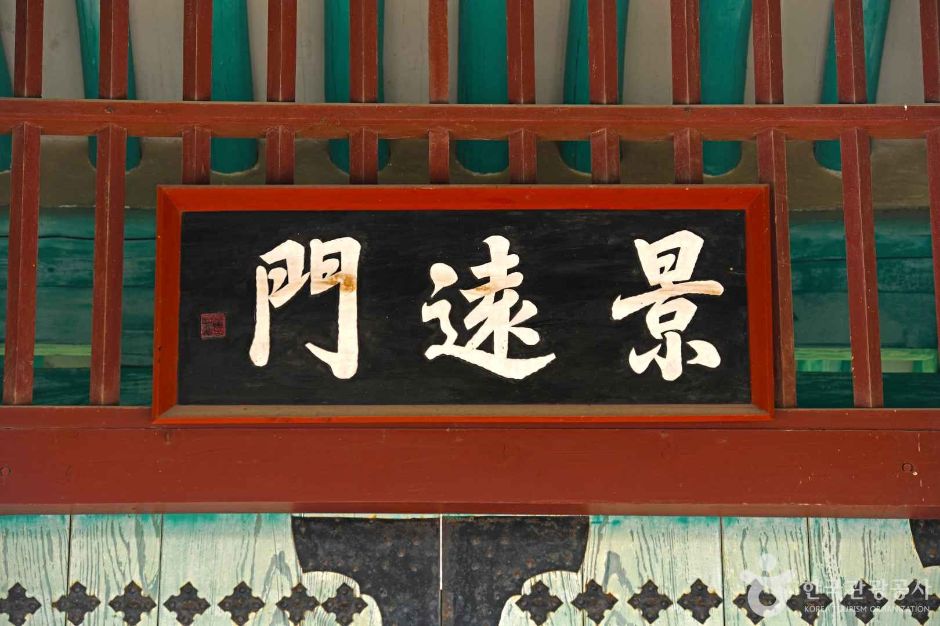 景遠門
한국관광공사
KOREA TOURISM ORGANIZATION